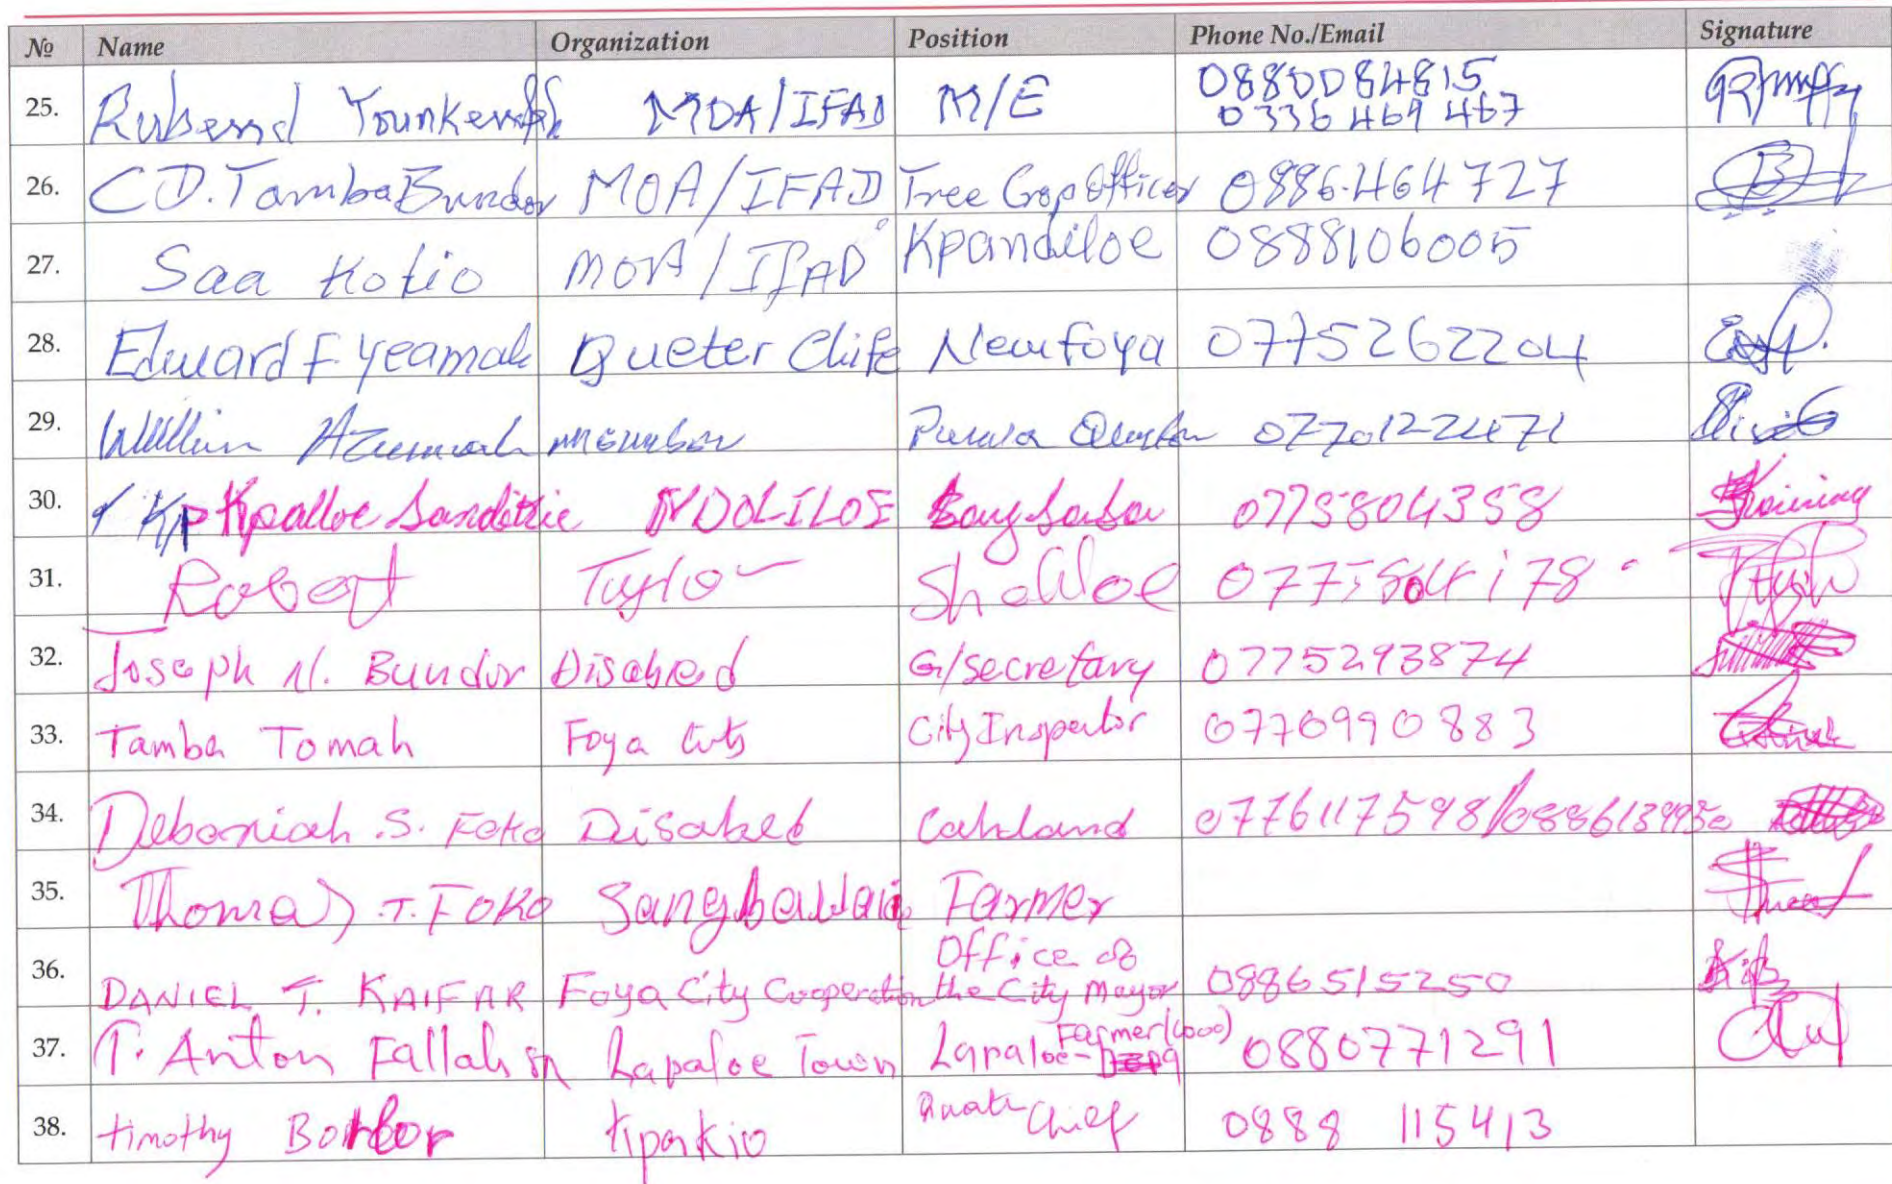 № Name Organization Position Phone No./Email Signature
25. MOA/IFAD M/E 0880084815
0336 469 467
26. CD. Tamba Bundor MOA/IFAD Tree Crop Officer 0886464727
27. Saa Kotio MOA/IFAD Kpandiloe 0888106005
28. Edward F Yeamah Queter Chife New foya 0775262204
29. member
30. Kp Kpalloe NDOLILOE 0775804358
31. Robert Taylor Shelloe 0775804178
32. Joseph N. Bundor Disabled G/secretary 0775293874
33. Tamba Tomah Foya City City Inspector 0770990883
34. Deboniah .S. Foko Disabled 0776117598/
35. Thomas .T. FOKO Farmer
36. DANIEL T. KAIFAR Foya City Cooperation Office of
the City Mayor 0886515250
37. T. Anton Fallah Lapaloe Town Lapaloe- Farmer 0880771291
38. timothy Borbor Kpankio Chief 0888 115413